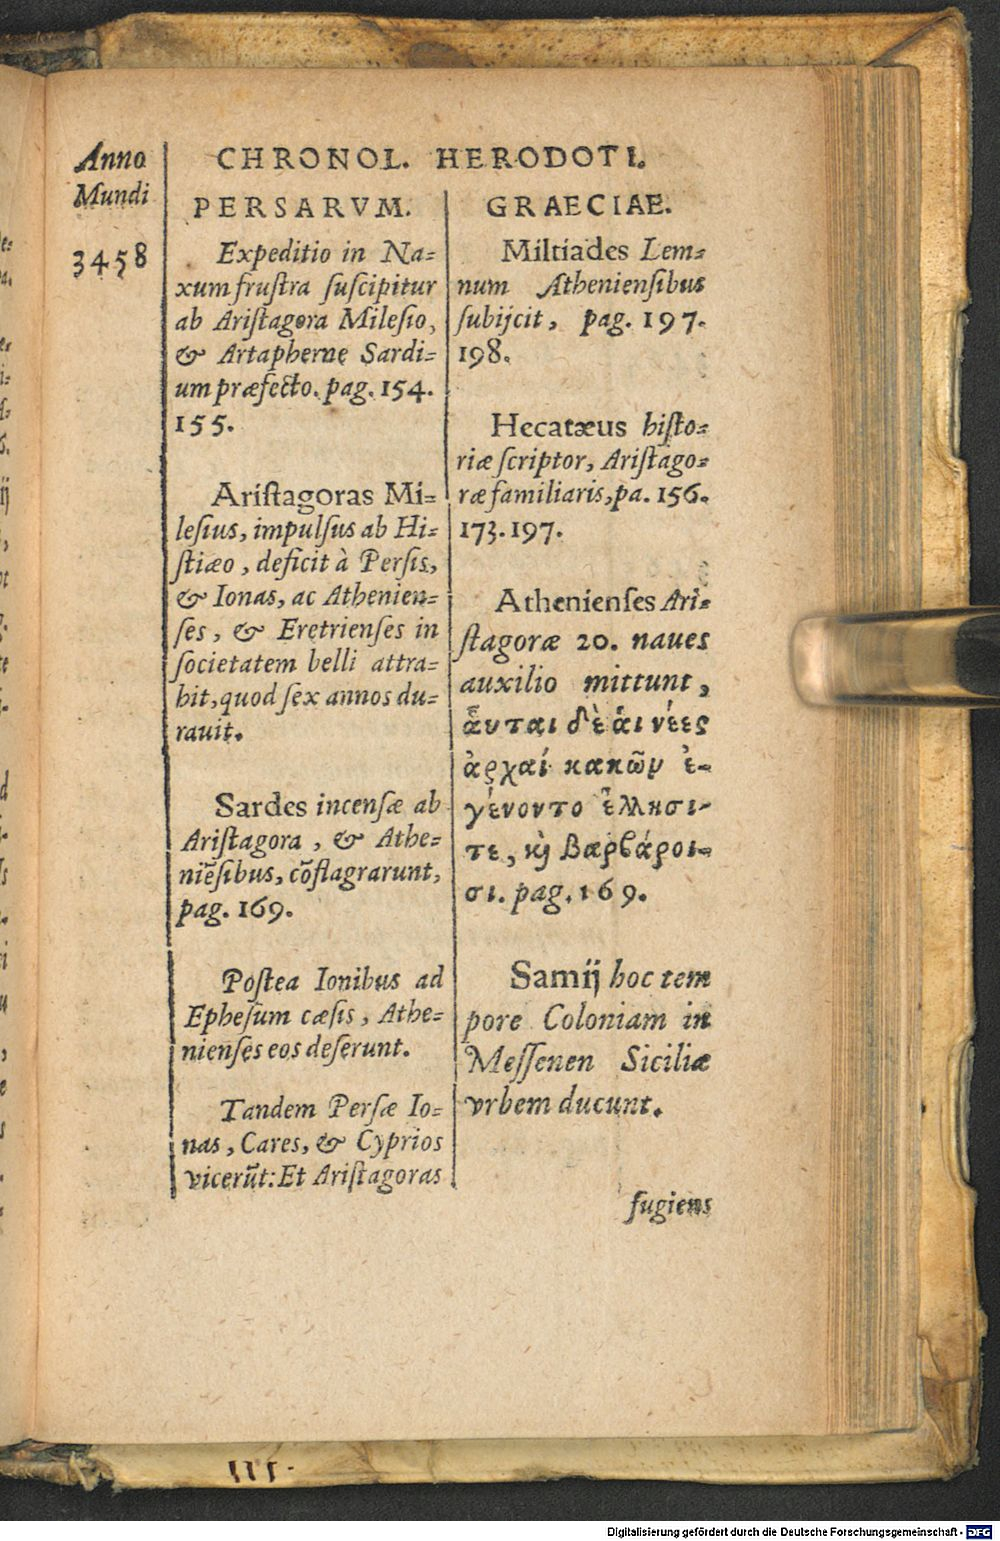 Anno
Mundi
3458
CHRONOL. HERODOTI.
PERSARVM.
Expeditio in Na-
xum frustra suscipitur
ab Aristagora Milesio,
& Artapherne Sardi-
um præfecto. pag. 154.
155.
Aristagoras Mi-
lesius, impulsus ab Hi-
stiæo, deficit à Persis,
& Ionas, ac Athenien-
ses, & Eretrienses in
societatem belli attra-
hit, quod sex annos du-
rauit.
Sardes incensæ ab
Aristagora, & Athe-
niēsibus, cōflagrarunt,
pag. 169.
Postea Ionibus ad
Ephesum cæsis, Athe-
nienses eos deserunt.
Tandem Persæ Io-
nas, Cares, & Cyprios
vicerūt: Et Aristagoras
GRAECIAE.
Miltiades Lem-
num Atheniensibus
subijcit, pag. 197.
198.
Hecatæus histo-
riæ scriptor, Aristago-
ræ familiaris, pa. 156.
173. 197.
Athenienses Ari-
stagoræ 20. naues
auxilio mittunt,
ἅυται δὲ ἁι νέες
ἀρχαί κακῶν ἐ-
γένοντο ἕλλησι-
τε, ϗ βαρβάροι-
σι. pag. 169.
Samij hoc tem
pore Coloniam in
Messenen Siciliæ
vrbem ducunt.
fugiens
Digitalisierung gefördert durch die Deutsche Forschungsgemeinschaft - DFG